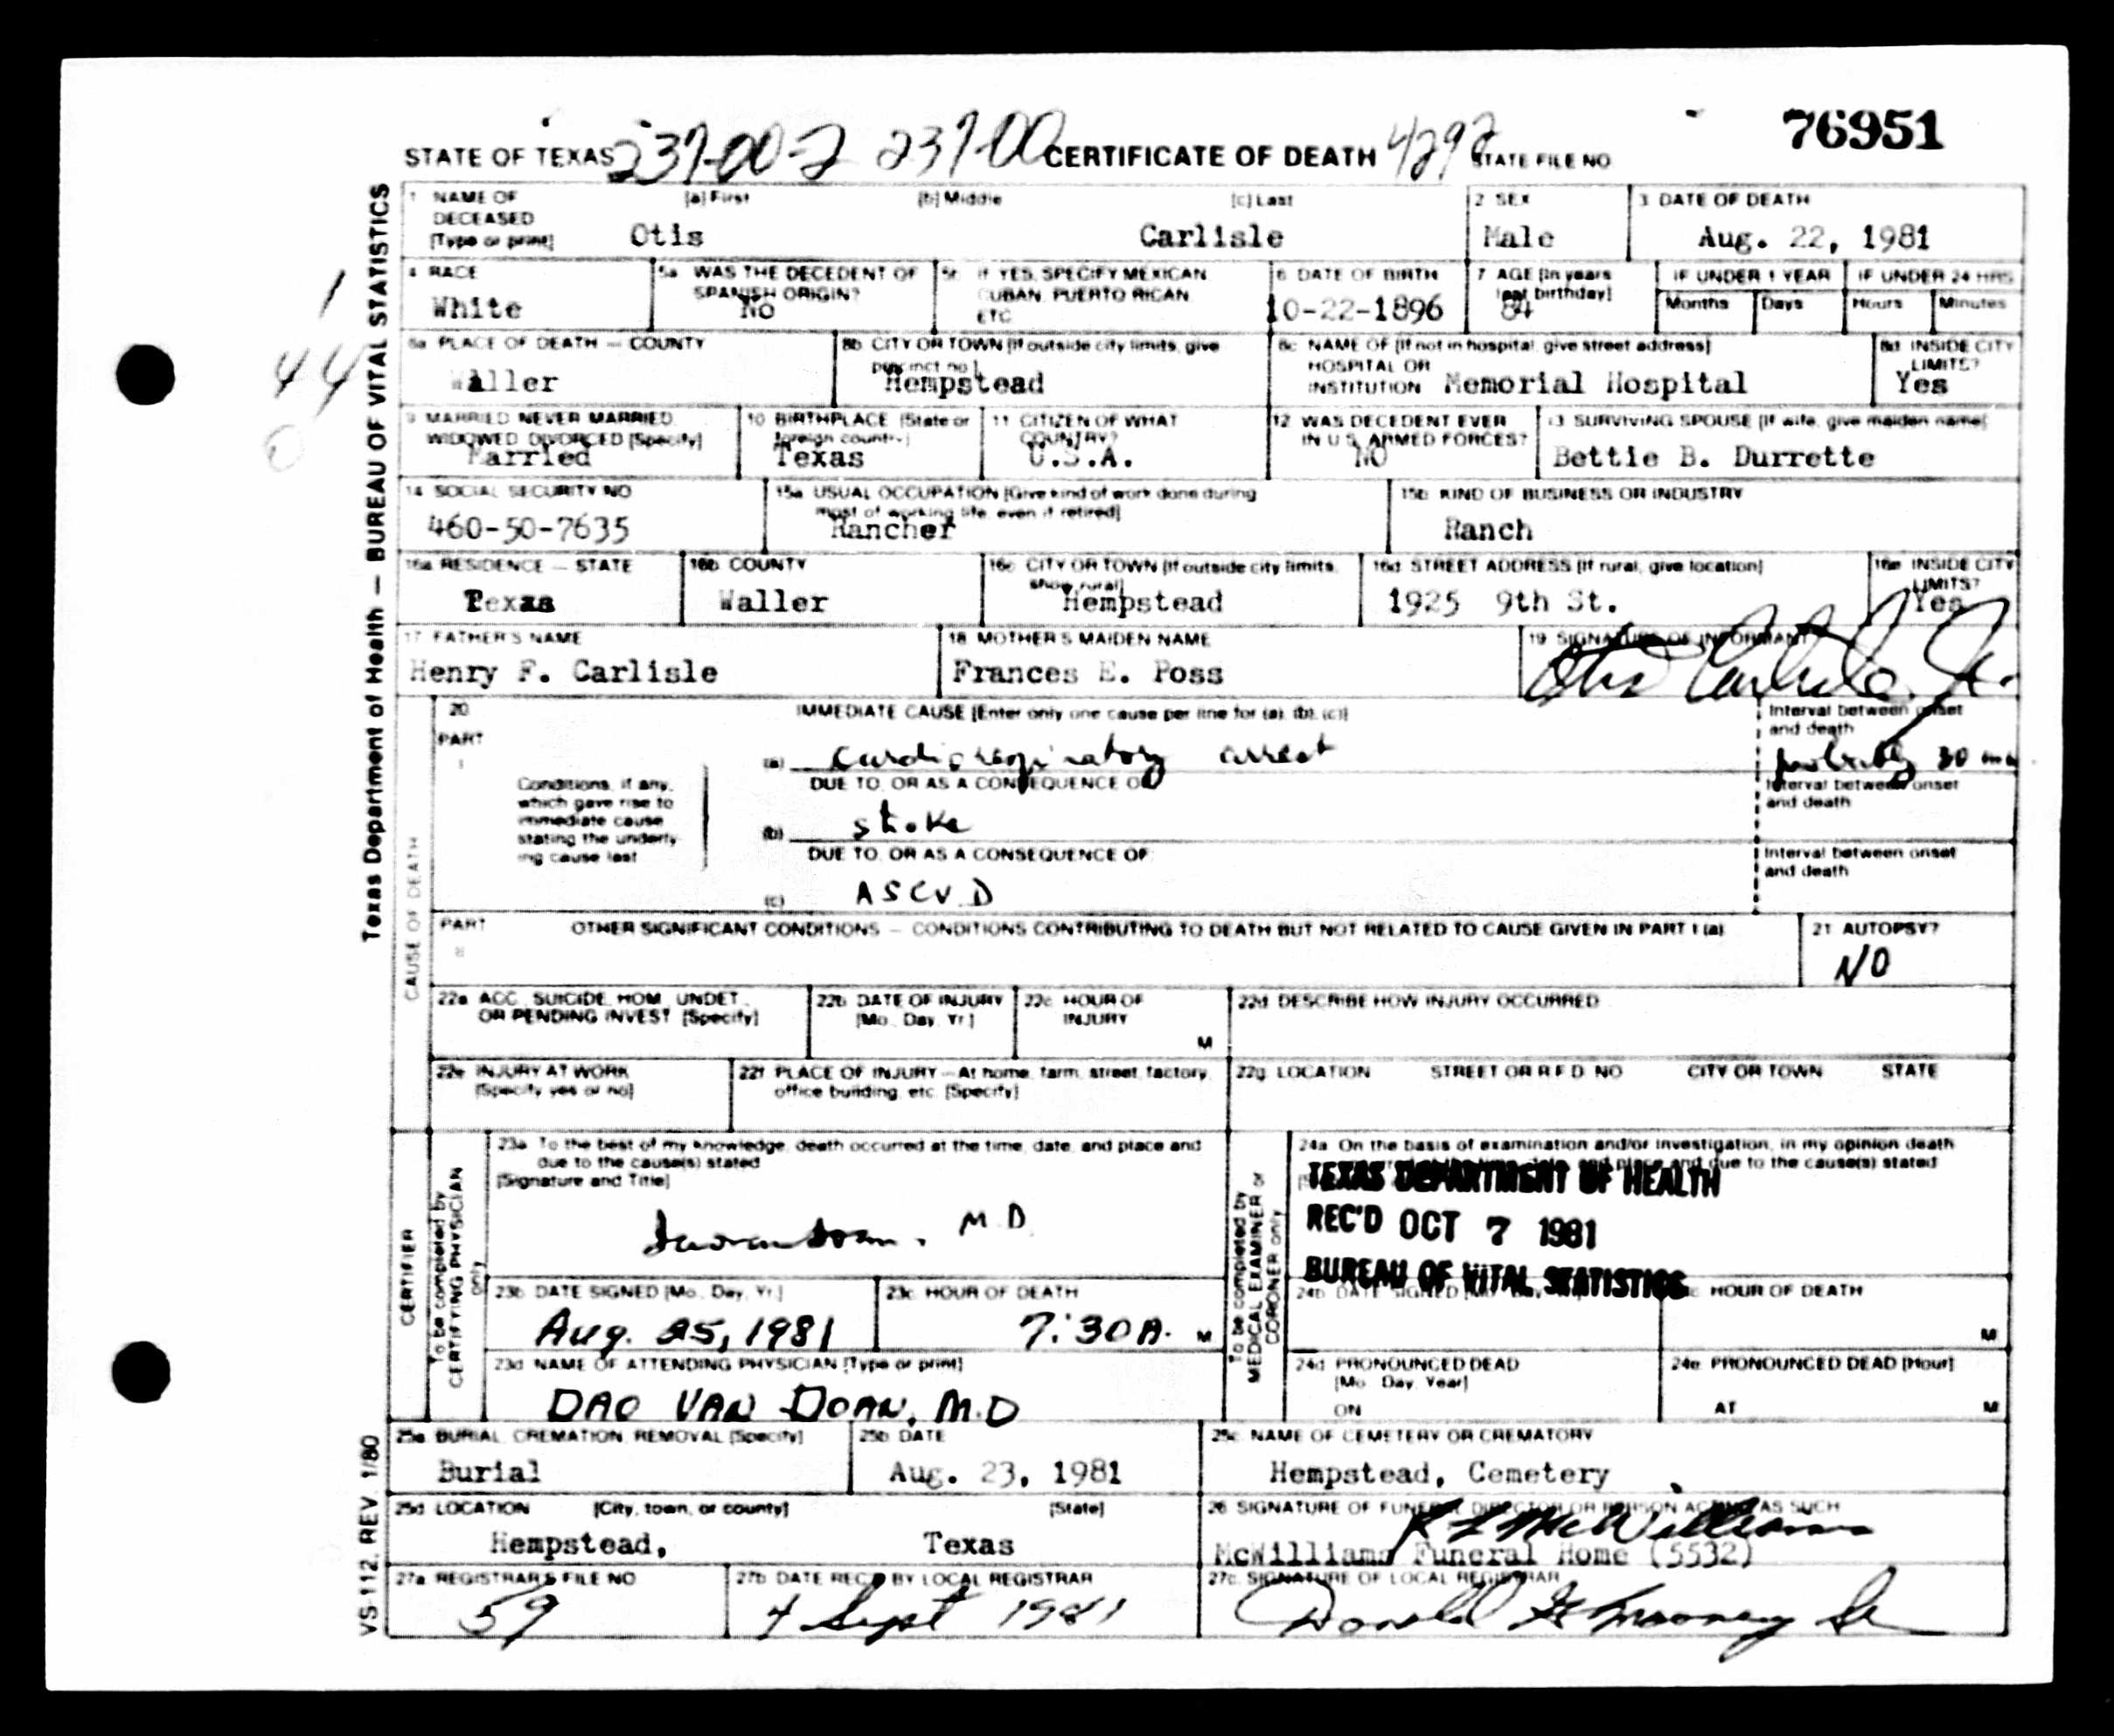 76951
STATE OF TEXAS 237-00-2 237-00 CERTIFICATE OF DEATH 4292 STATE FILE NO
Texas Department of Health — BUREAU OF VITAL STATISTICS
1 NAME OF DECEASED [Type or print] [a] First [b] Middle [c] Last
Otis Carlisle
2 SEX
Male
3 DATE OF DEATH
Aug. 22, 1981
4 RACE
White
5a WAS THE DECEDENT OF SPANISH ORIGIN?
No
IF YES, SPECIFY MEXICAN CUBAN, PUERTO RICAN ETC
6 DATE OF BIRTH
10-22-1896
7 AGE [In years last birthday]
84
IF UNDER 1 YEAR
Months Days
IF UNDER 24 HRS
Hours Minutes
1
44
0
8a PLACE OF DEATH — COUNTY
Waller
8b CITY OR TOWN [If outside city limits, give precinct no]
Hempstead
8c NAME OF [If not in hospital, give street address] HOSPITAL OR INSTITUTION
Memorial Hospital
8d INSIDE CITY LIMITS?
Yes
9 MARRIED NEVER MARRIED WIDOWED DIVORCED [Specify]
Married
10 BIRTHPLACE [State or foreign country]
Texas
11 CITIZEN OF WHAT COUNTRY?
U.S.A.
12 WAS DECEDENT EVER IN U.S. ARMED FORCES?
NO
13 SURVIVING SPOUSE [If wife, give maiden name]
Bettie B. Durrette
14 SOCIAL SECURITY NO
460-50-7635
15a USUAL OCCUPATION [Give kind of work done during most of working life, even if retired]
Rancher
15b KIND OF BUSINESS OR INDUSTRY
Ranch
16a RESIDENCE — STATE
Texas
16b COUNTY
Waller
16c CITY OR TOWN [If outside city limits, show rural]
Hempstead
16d STREET ADDRESS [If rural, give location]
1925 9th St.
16e INSIDE CITY LIMITS?
Yes
17 FATHER'S NAME
Henry F. Carlisle
18 MOTHER'S MAIDEN NAME
Frances E. Poss
19 SIGNATURE OF INFORMANT
Otis Carlisle, Jr.
CAUSE OF DEATH
20 PART I
IMMEDIATE CAUSE [Enter only one cause per line for (a), (b), (c)]
Conditions, if any, which gave rise to immediate cause stating the underlying cause last
(a) Cardiorespiratory arrest
Interval between onset and death
probably 30 min
DUE TO, OR AS A CONSEQUENCE OF
(b) stroke
Interval between onset and death
DUE TO, OR AS A CONSEQUENCE OF
(c) ASCVD
Interval between onset and death
PART II
OTHER SIGNIFICANT CONDITIONS — CONDITIONS CONTRIBUTING TO DEATH BUT NOT RELATED TO CAUSE GIVEN IN PART I (a)
21 AUTOPSY?
NO
22a ACC, SUICIDE, HOM, UNDET, OR PENDING INVEST [Specify]
22b DATE OF INJURY [Mo. Day, Yr.]
22c HOUR OF INJURY
M
22d DESCRIBE HOW INJURY OCCURRED
22e INJURY AT WORK [Specify yes or no]
22f PLACE OF INJURY — At home, farm, street, factory, office building, etc. [Specify]
22g LOCATION STREET OR R.F.D. NO CITY OR TOWN STATE
CERTIFIER
To be completed by CERTIFYING PHYSICIAN only
23a To the best of my knowledge, death occurred at the time, date, and place and due to the cause(s) stated
[Signature and Title]
M.D.
23b DATE SIGNED [Mo., Day, Yr.]
Aug. 25, 1981
23c HOUR OF DEATH
7:30 A. M
23d NAME OF ATTENDING PHYSICIAN [Type or print]
DAO VAN DOAN, M.D
To be completed by MEDICAL EXAMINER or CORONER only
24a On the basis of examination and/or investigation, in my opinion death
and place and due to the cause(s) stated
TEXAS DEPARTMENT OF HEALTH
REC'D OCT 7 1981
BUREAU OF VITAL STATISTICS
24b DATE SIGNED
HOUR OF DEATH
M
24d PRONOUNCED DEAD [Mo. Day, Year]
ON
24e PRONOUNCED DEAD [Hour]
AT M
25a BURIAL, CREMATION, REMOVAL [Specify]
Burial
25b DATE
Aug. 23, 1981
25c NAME OF CEMETERY OR CREMATORY
Hempstead, Cemetery
25d LOCATION [City, town, or county] [State]
Hempstead, Texas
26 SIGNATURE OF FUNERAL DIRECTOR OR PERSON ACTING AS SUCH
R L McWilliams
McWilliams Funeral Home (5532)
27a REGISTRAR'S FILE NO
59
27b DATE REC'D BY LOCAL REGISTRAR
4 Sept 1981
27c SIGNATURE OF LOCAL REGISTRAR
VS-112, REV. 1/80